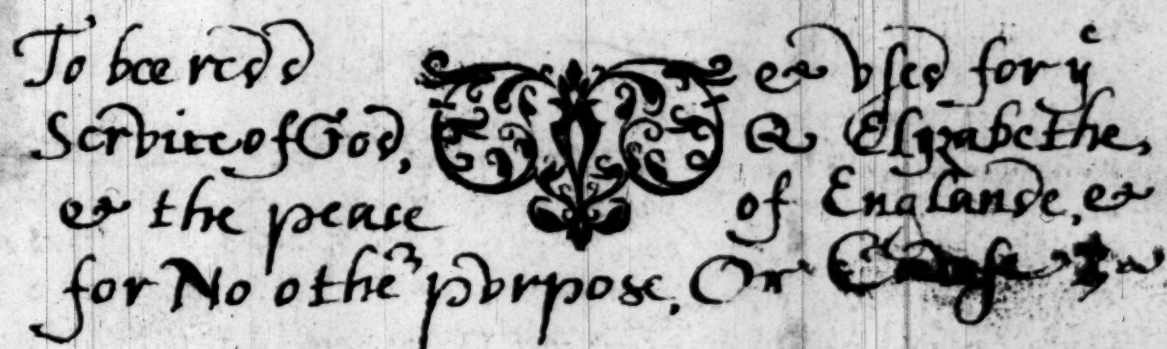 To bee redd & vsed for yᵉ
Servicε of God, Q Elyzabethe,
& the peace of Englande, &
for No otheʳ pvrpose, Or Cawse